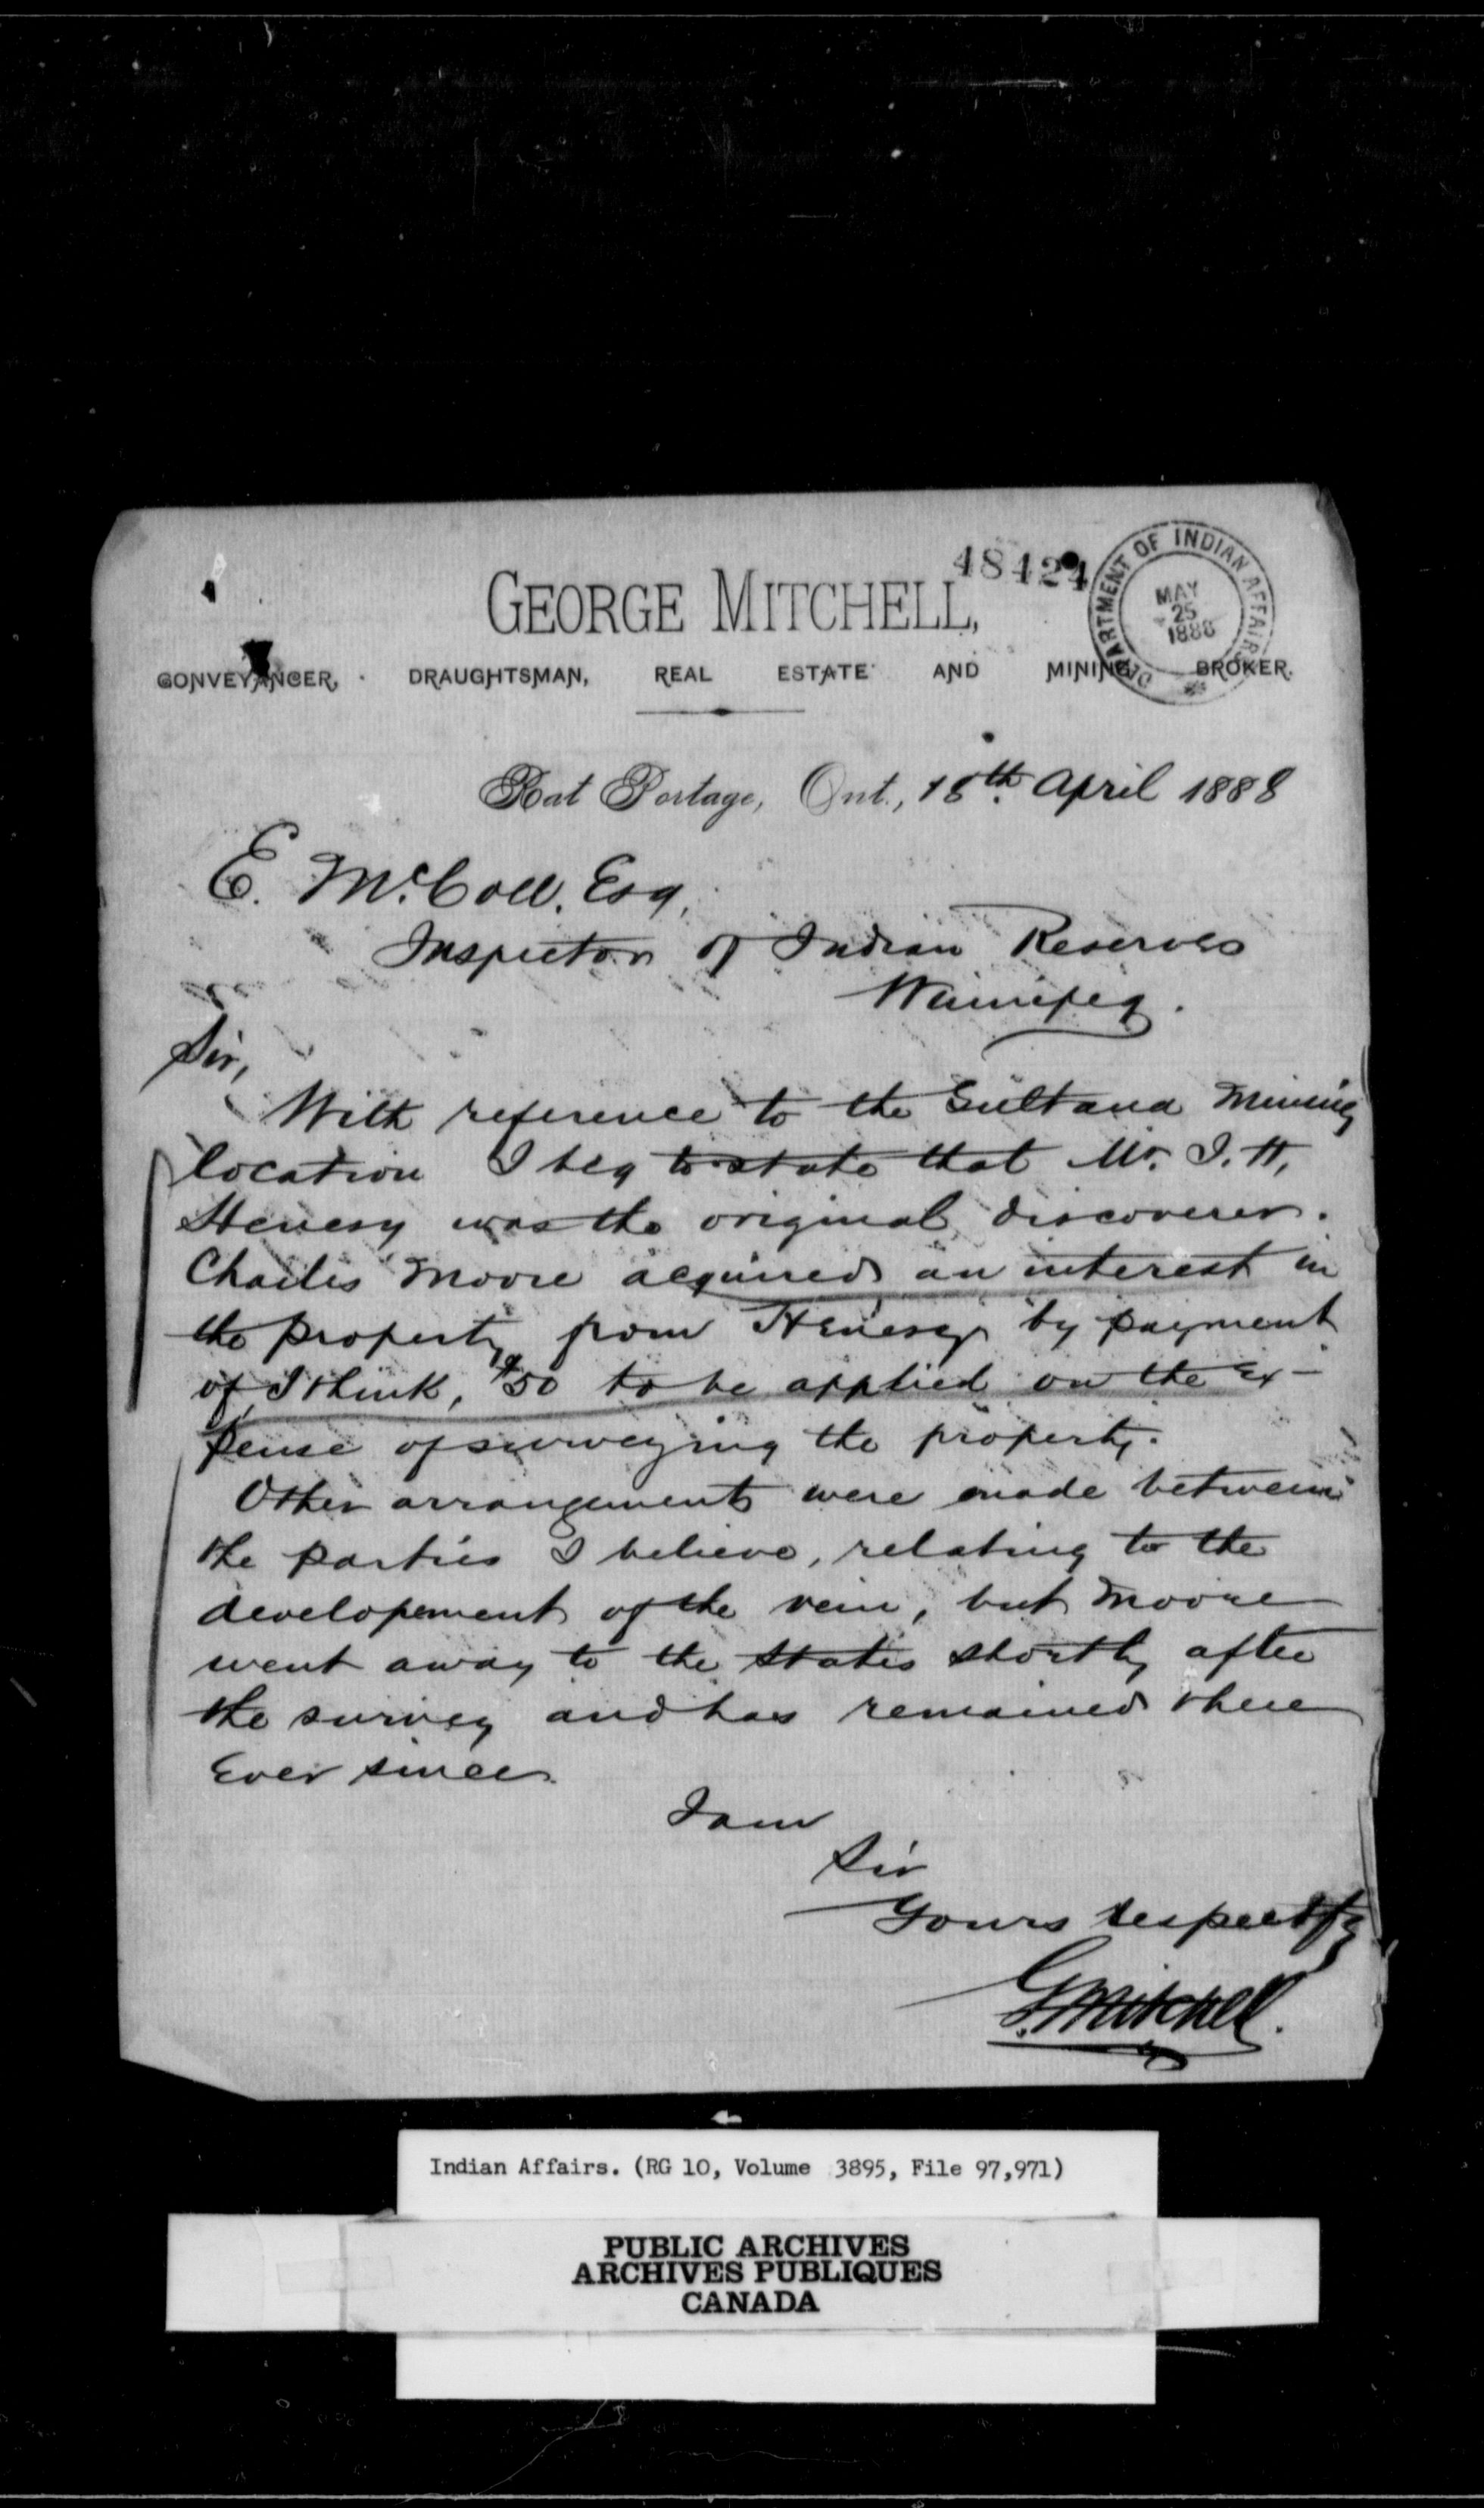 48424
DEPARTMENT OF INDIAN AFFAIRS
MAY
25
1888
GEORGE MITCHELL,
CONVEYANCER, DRAUGHTSMAN, REAL ESTATE AND MINING BROKER.
Rat Portage, Ont., 18th. April 1888
E. McColl. Esq,
Inspector of Indian Reserves
Winnipeg.
Sir,
With reference to the Sultana Mining
location I beg to state that Mr. I. H,
Henesy was the original discoverer.
Charles Moore acquired an interest in
the property from Henesy by payment
of, I think, $50 to be applied on the ex-
pense of surveying the property.
Other arrangements were made between
the parties I believe, relating to the
developement of the vein, but Moore
went away to the States shortly after
the survey and has remained there
Ever since.
I am
Sir
Yours respectfy
G. Mitchell.
Indian Affairs. (RG 10, Volume 3895, File 97,971)
PUBLIC ARCHIVES
ARCHIVES PUBLIQUES
CANADA